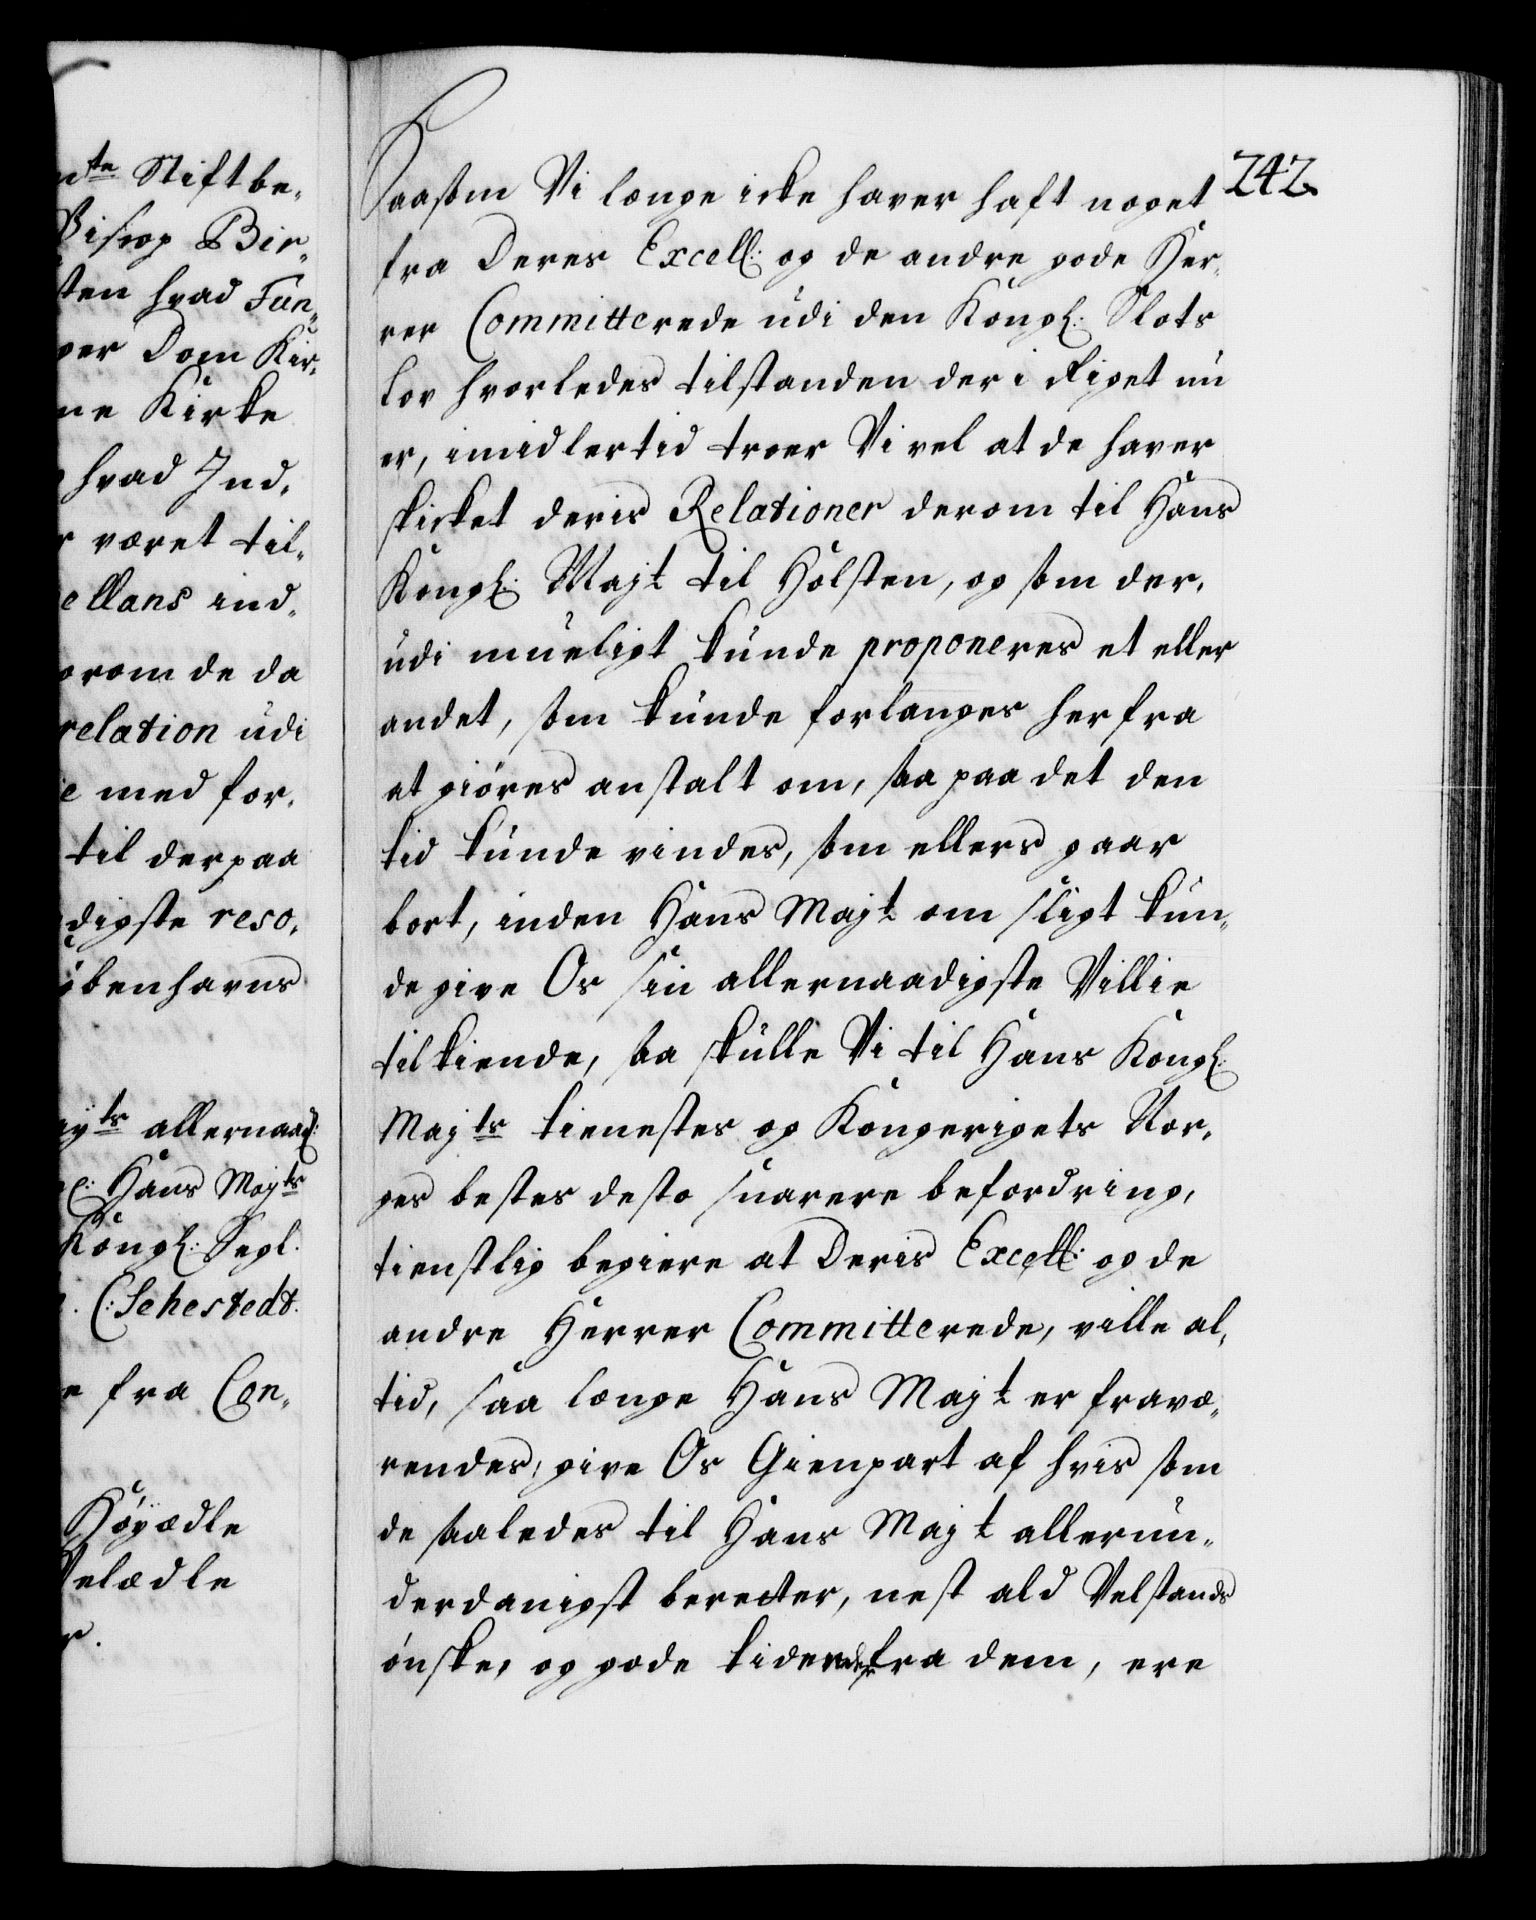 dte Stiftbe-
Biskop Bir-
sten hvad Fun-
ger Dom Kir-
ne Kirke
hvad Ind-
r været til-
ellans ind-
orom de da
relation udi
e med for-
til derpaa
digste reso-
benhavns
ayts allernaad:
Hans Mayts
Kongl: Segl.
C: Sehestedt.
e fra Con-
Høyædle
Velædle
r.
242.
Saasom Vi længe icke haver haft noget
fra Deres Excell: og de andre gode Her-
rer Committerede udi den Kongl: Slots
lov hvorledes tilstanden der i Riget nu
er, imidlertid troer Vi vel at de haver
skicket deris Relationer derom til Hans
Kongl: Majt til Holsten, og som der-
udi mueligt kunde proponeres et eller
andet, som kunde forlanges her fra
at giøres anstalt om, saa paa det den
tid kunde vindes, som ellers gaar
bort, inden Hans Majt om sligt kun-
de give Os sin allernaadigste Villie
tilkiende, saa skulle Vi til Hans Kongl:
Majts tienestes og Kongerigets Nor-
ges bestes desto snarere befordring,
tienstlig begiere at Deris Excell: og de
andre Herrer Committerede, ville al-
tid, saa længe Hans Majt er fravæ-
rendes, give Os Gienpart af hvis som
de saaledes til Hans Majt allerun-
derdanigst berecter, nest ald Velstands
ønske, og gode tidender fra dem, ere